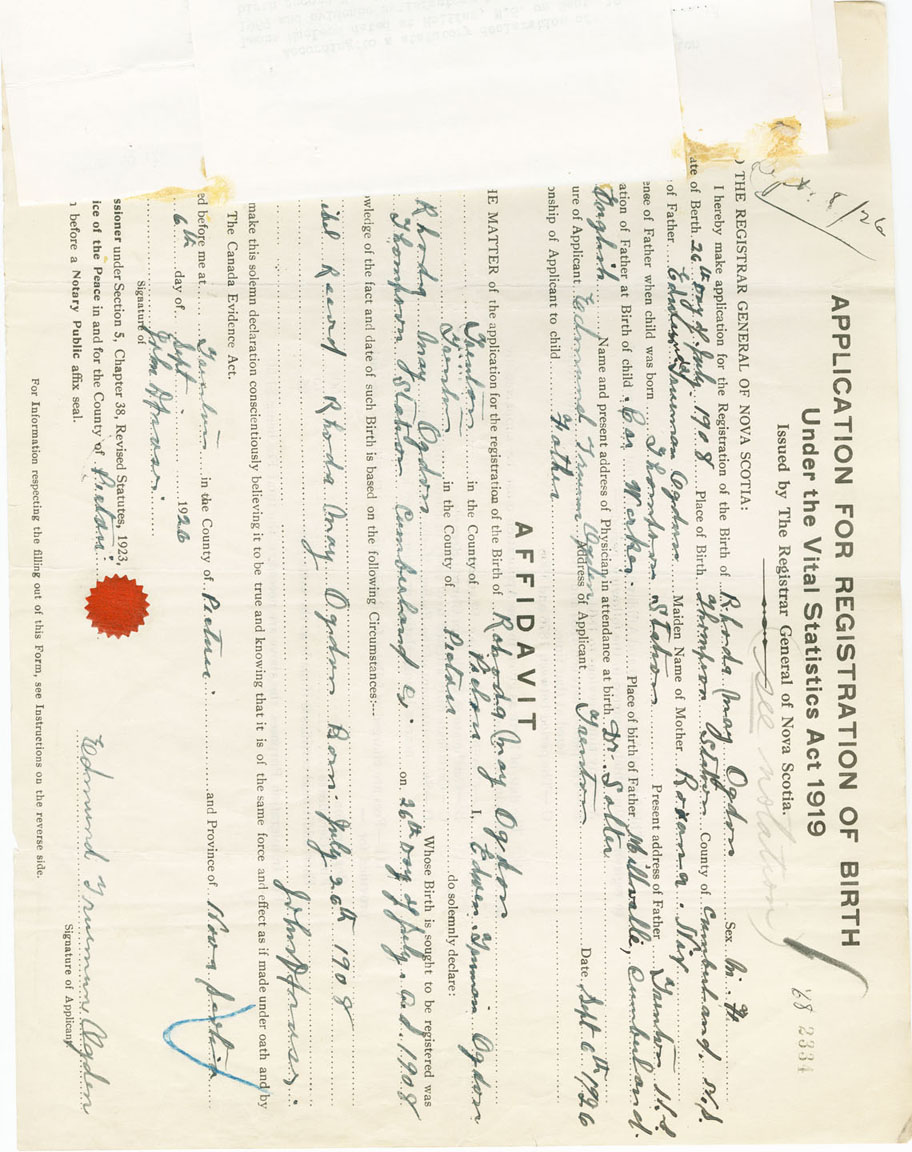 Sept. 8/26
68 2334
APPLICATION FOR REGISTRATION OF BIRTH
Under the Vital Statistics Act 1919
Issued by The Registrar General of Nova Scotia.
see notation
) THE REGISTRAR GENERAL OF NOVA SCOTIA:
I hereby make application for the Registration of the Birth of Rhoda May Ogdon Sex
ate of Berth 26th day of July 1908 Place of Birth Thompson Station County of Cumberland. N.S.
of Father Trueman Ogdon Maiden Name of Mother Roxana
ence of Father when child was born Thompson Station Present address of Father Trenton N.S.
ation of Father at Birth of child Car Worker. Place of birth of Father Millvale, Cumberland.
Name and present address of Physician in attendance at birth Dr. Salter
ure of Applicant Edmund Address of Applicant Trenton Date Sept 6th 1926
onship of Applicant to child Father
AFFIDAVIT
HE MATTER of the application for the registration of the Birth of Rhoda May Ogdon
Trenton in the County of Pictou I, Truman Ogdon
Trenton in the County of Pictou do solemnly declare:
Rhoda May Ogdon Whose Birth is sought to be registered was
Thompson Station Cumberland Co. on 26th Day of July. A.D. 1908
wledge of the fact and date of such Birth is based on the following Circumstances:—
Rhoda May Ogdon Born. July 26th 1908
make this solemn declaration conscientiously believing it to be true and knowing that it is of the same force and effect as if made under oath and by
The Canada Evidence Act.
ed before me at Trenton in the County of Pictou and Province of Nova Scotia
6th day of Sept 1926
Signature of
ssioner under Section 5, Chapter 38, Revised Statutes, 1923,
ice of the Peace in and for the County of Pictou.
n before a Notary Public affix seal.
Edmund Trumun Ogden
Signature of Applicant
For Information respecting the filling out of this Form, see Instructions on the reverse side.